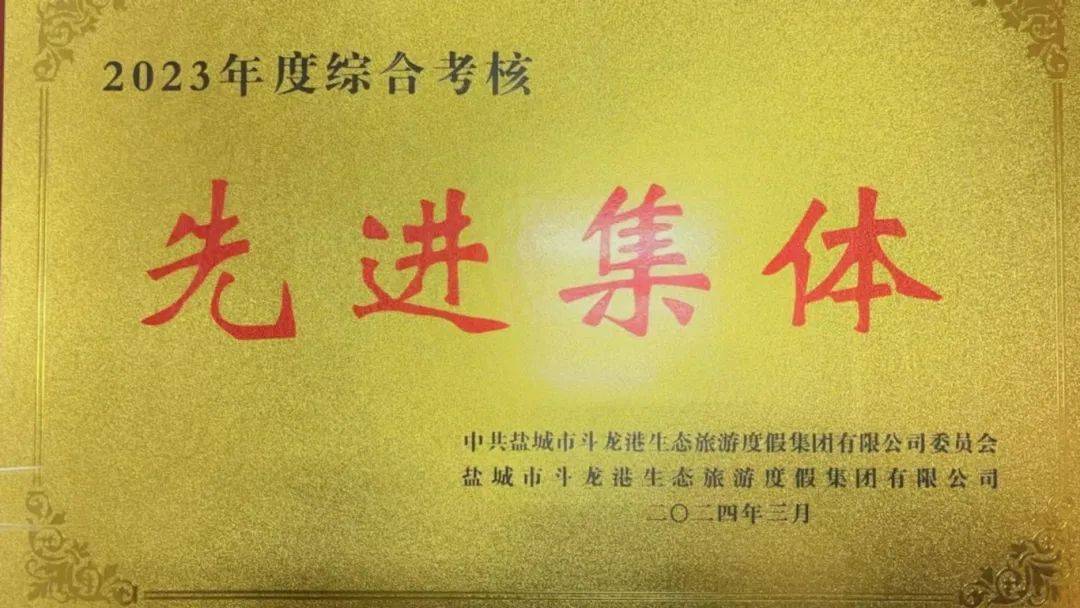 2023年度综合考核
先进集体
中共盐城市斗龙港生态旅游度假集团有限公司委员会
盐城市斗龙港生态旅游度假集团有限公司
二〇二四年三月